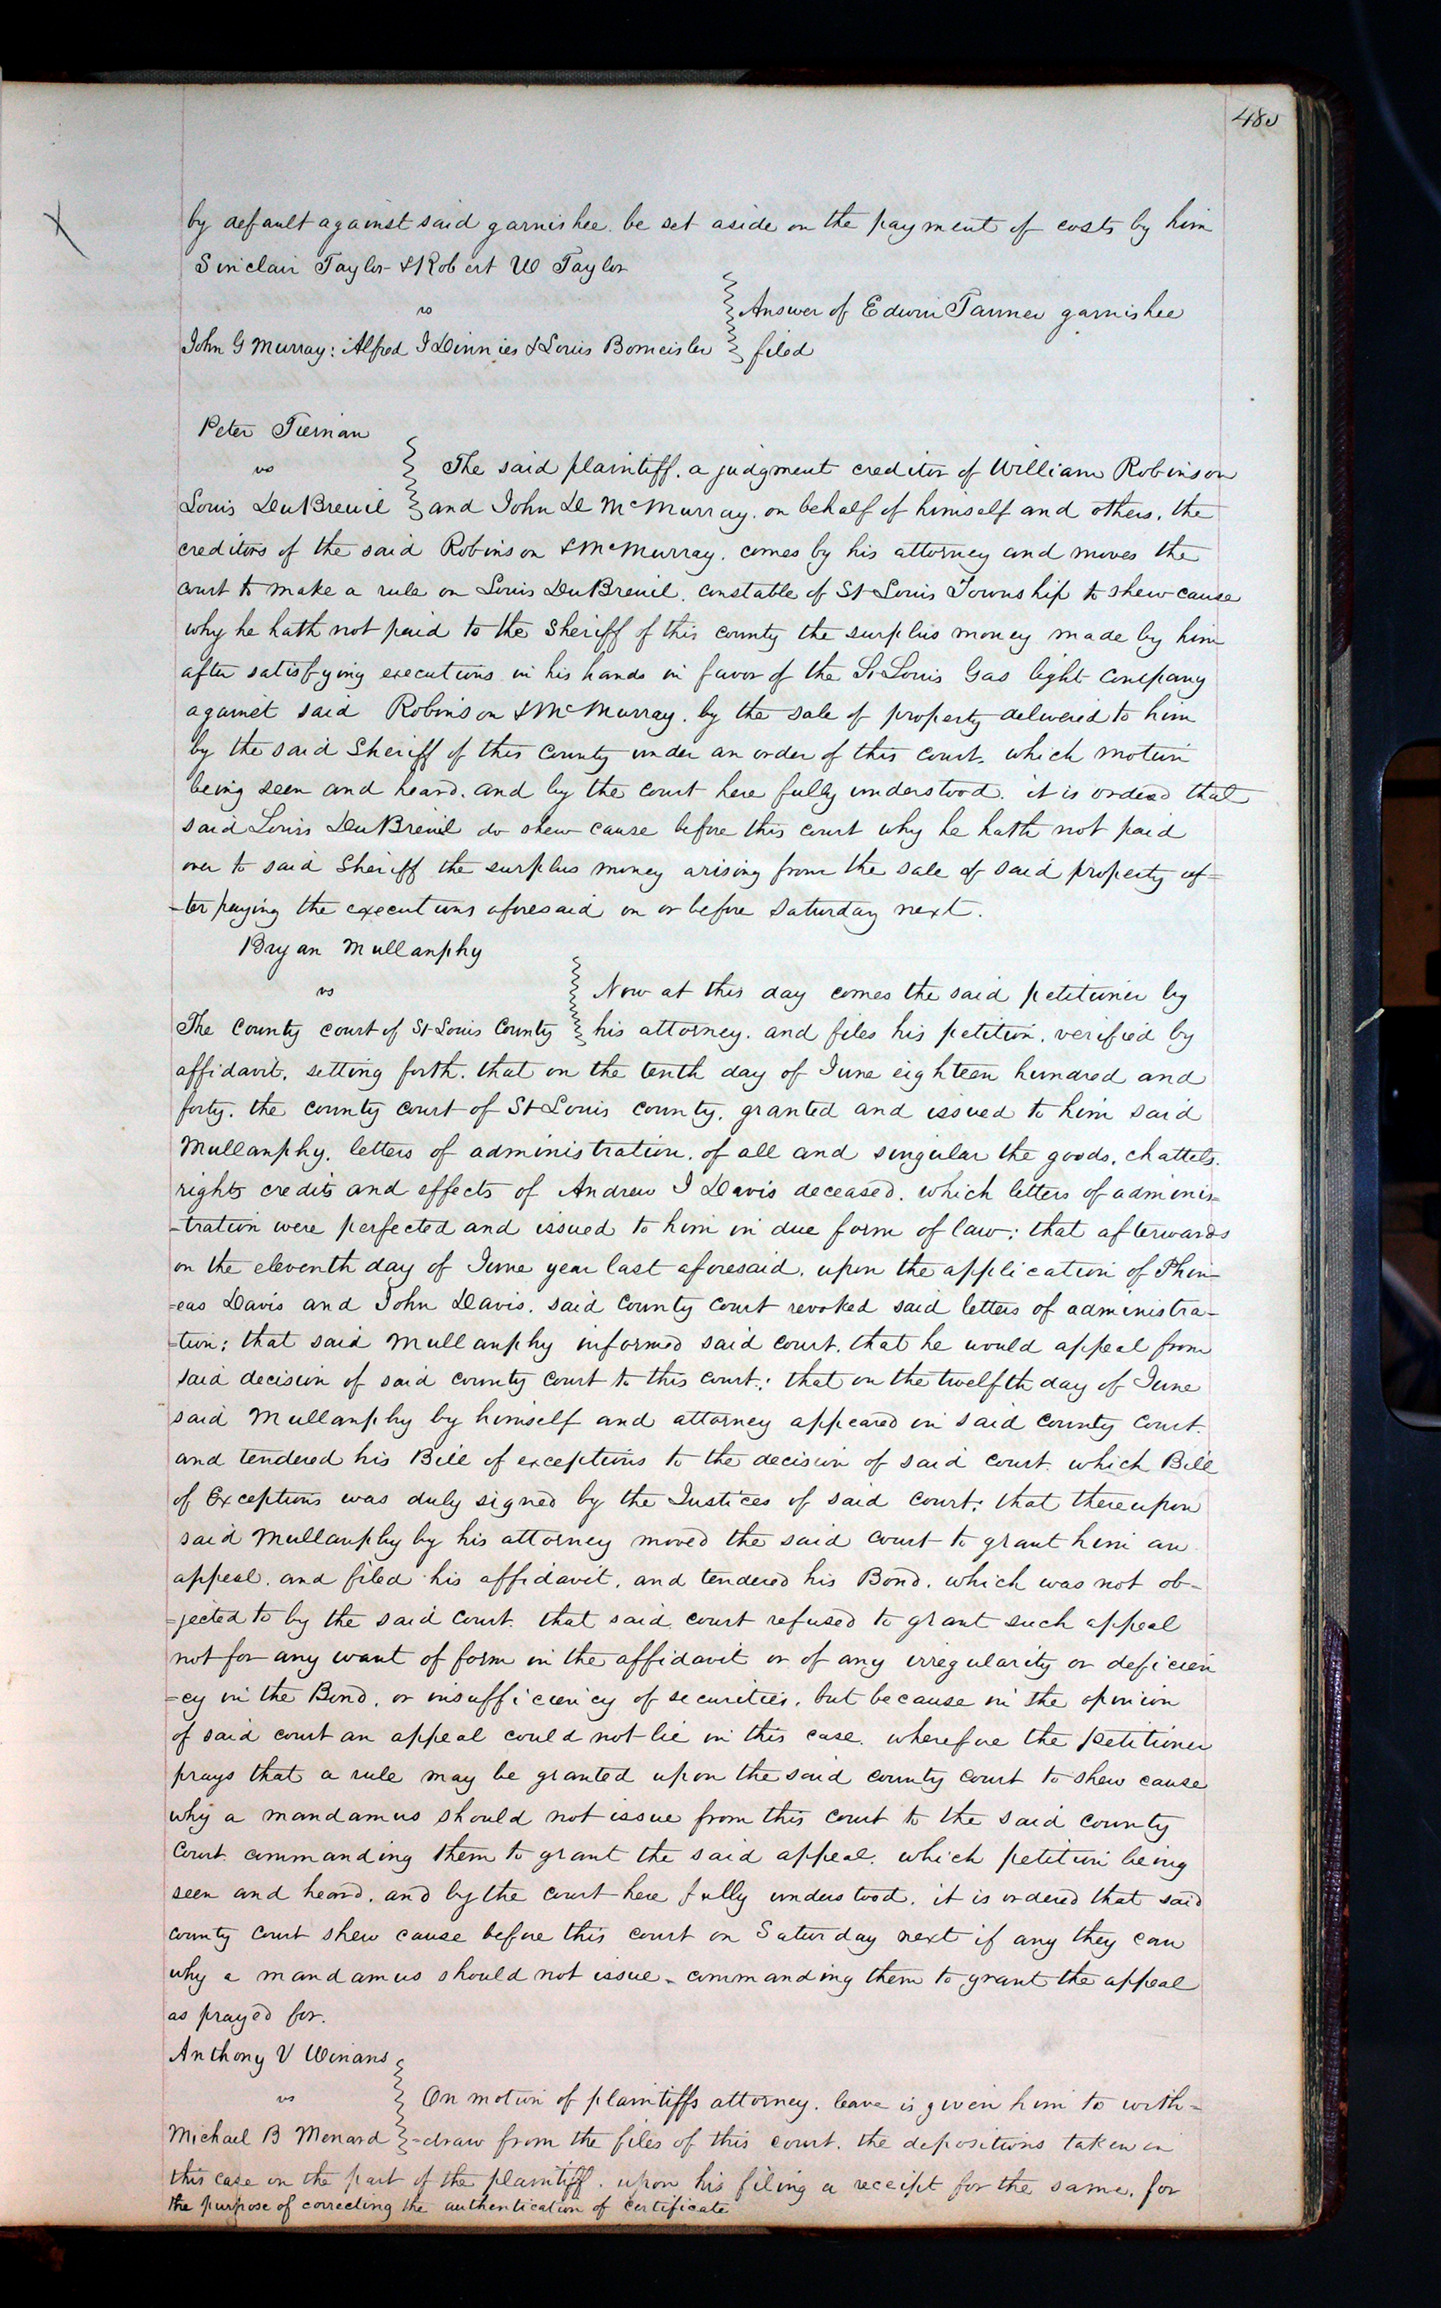 480
by default against said garnishee. be set aside on the payment of costs by him
Sinclair Taylor & Robert W Taylor
vs
Answer of Edwin Tanner garnishee
John G Murray: Alfred J Dinnies & Louis Bomeisler
filed
Peter Tiernan
vs
The said plaintiff. a judgment creditor of William Robinson
Louis DuBreuil
and John D McMurray. on behalf of himself and others. the
creditors of the said Robinson & McMurray. comes by his attorney and moves the
court to make a rule on Louis DuBreuil. constable of St Louis Township to shew cause
why he hath not paid to the Sheriff of this county the surplus money made by him
after satisfying executions in his hands in favor of the St Louis Gas light company
against said Robinson & McMurray. by the sale of property delivered to him
by the said Sheriff of this County under an order of this court. which motion
being seen and heard. and by the court here fully understood. it is ordered that
said Louis DuBreuil do shew cause before this court why he hath not paid
over to said Sheriff the surplus money arising from the sale of said property af=
-ter paying the executions aforesaid on or before Saturday next.
Bryan Mullanphy
vs
Now at this day comes the said petitioner by
The County court of St Louis County
his attorney. and files his petition. verified by
affidavit. setting forth. that on the tenth day of June eighteen hundred and
forty. the county court of St Louis county. granted and issued to him said
Mullanphy. letters of administration. of all and singular the goods. chattels.
rights credits and effects of Andrew J Davis deceased. which letters of adminis=
-tration were perfected and issued to him in due form of law: that afterwards
on the eleventh day of June year last aforesaid. upon the application of Phin-
=eas Davis and John Davis. said County Court revoked said letters of administra-
=tion: that said Mullanphy informed said court. that he would appeal from
said decision of said county court to this court: that on the twelfth day of June
said Mullanphy by himself and attorney appeared in said County Court.
and tendered his Bill of exceptions to the decision of said court. which Bill
of Exceptions was duly signed by the Justices of said court: that thereupon
said Mullanphy by his attorney moved the said court to grant him an
appeal. and filed his affidavit. and tendered his Bond. which was not ob-
=jected to by the said court. that said court refused to grant such appeal
not for any want of form in the affidavit or of any irregularity or deficien
=cy in the Bond. or insufficiency of securities. but because in the opinion
of said court an appeal could not lie in this case. wherefore the petitioner
prays that a rule may be granted upon the said county court to shew cause
why a mandamus should not issue from this court to the said county
Court commanding them to grant the said appeal. which petition being
seen and heard. and by the court here fully understood. it is ordered that said
county court shew cause before this court on Saturday next if any they can
why a mandamus should not issue. commanding them to grant the appeal
as prayed for.
Anthony V Winans
vs
On motion of plaintiffs attorney. leave is given him to with=
Michael B Menard
-draw from the files of this court. the depositions taken in
this case on the part of the plaintiff. upon his filing a receipt for the same. for
the purpose of correcting the authentication of certificate